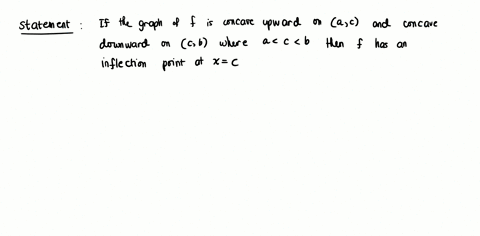 Statement : If the graph of f is concave upward on (a,c) and concave
downward on (c,b) where a < c < b then f has an
inflection point at x = c